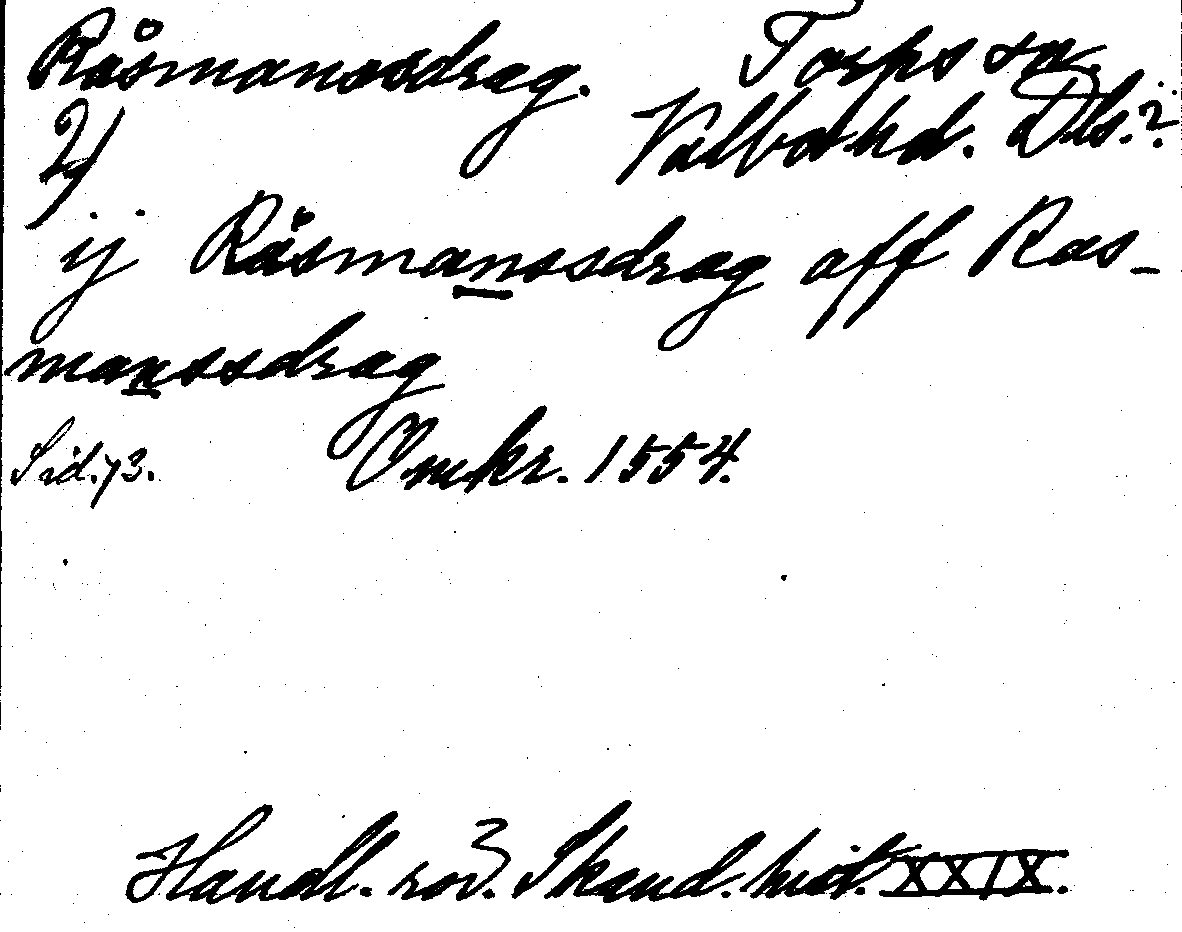 Råsmanssdrag. Torps sn.
2/ Valbo hd. Dls.?
ij Råsmanssdrag aff Ras-
manssdrag
Sid. 73. Omkr. 1554.
Handl. rör. Skand. hist. XXIX.